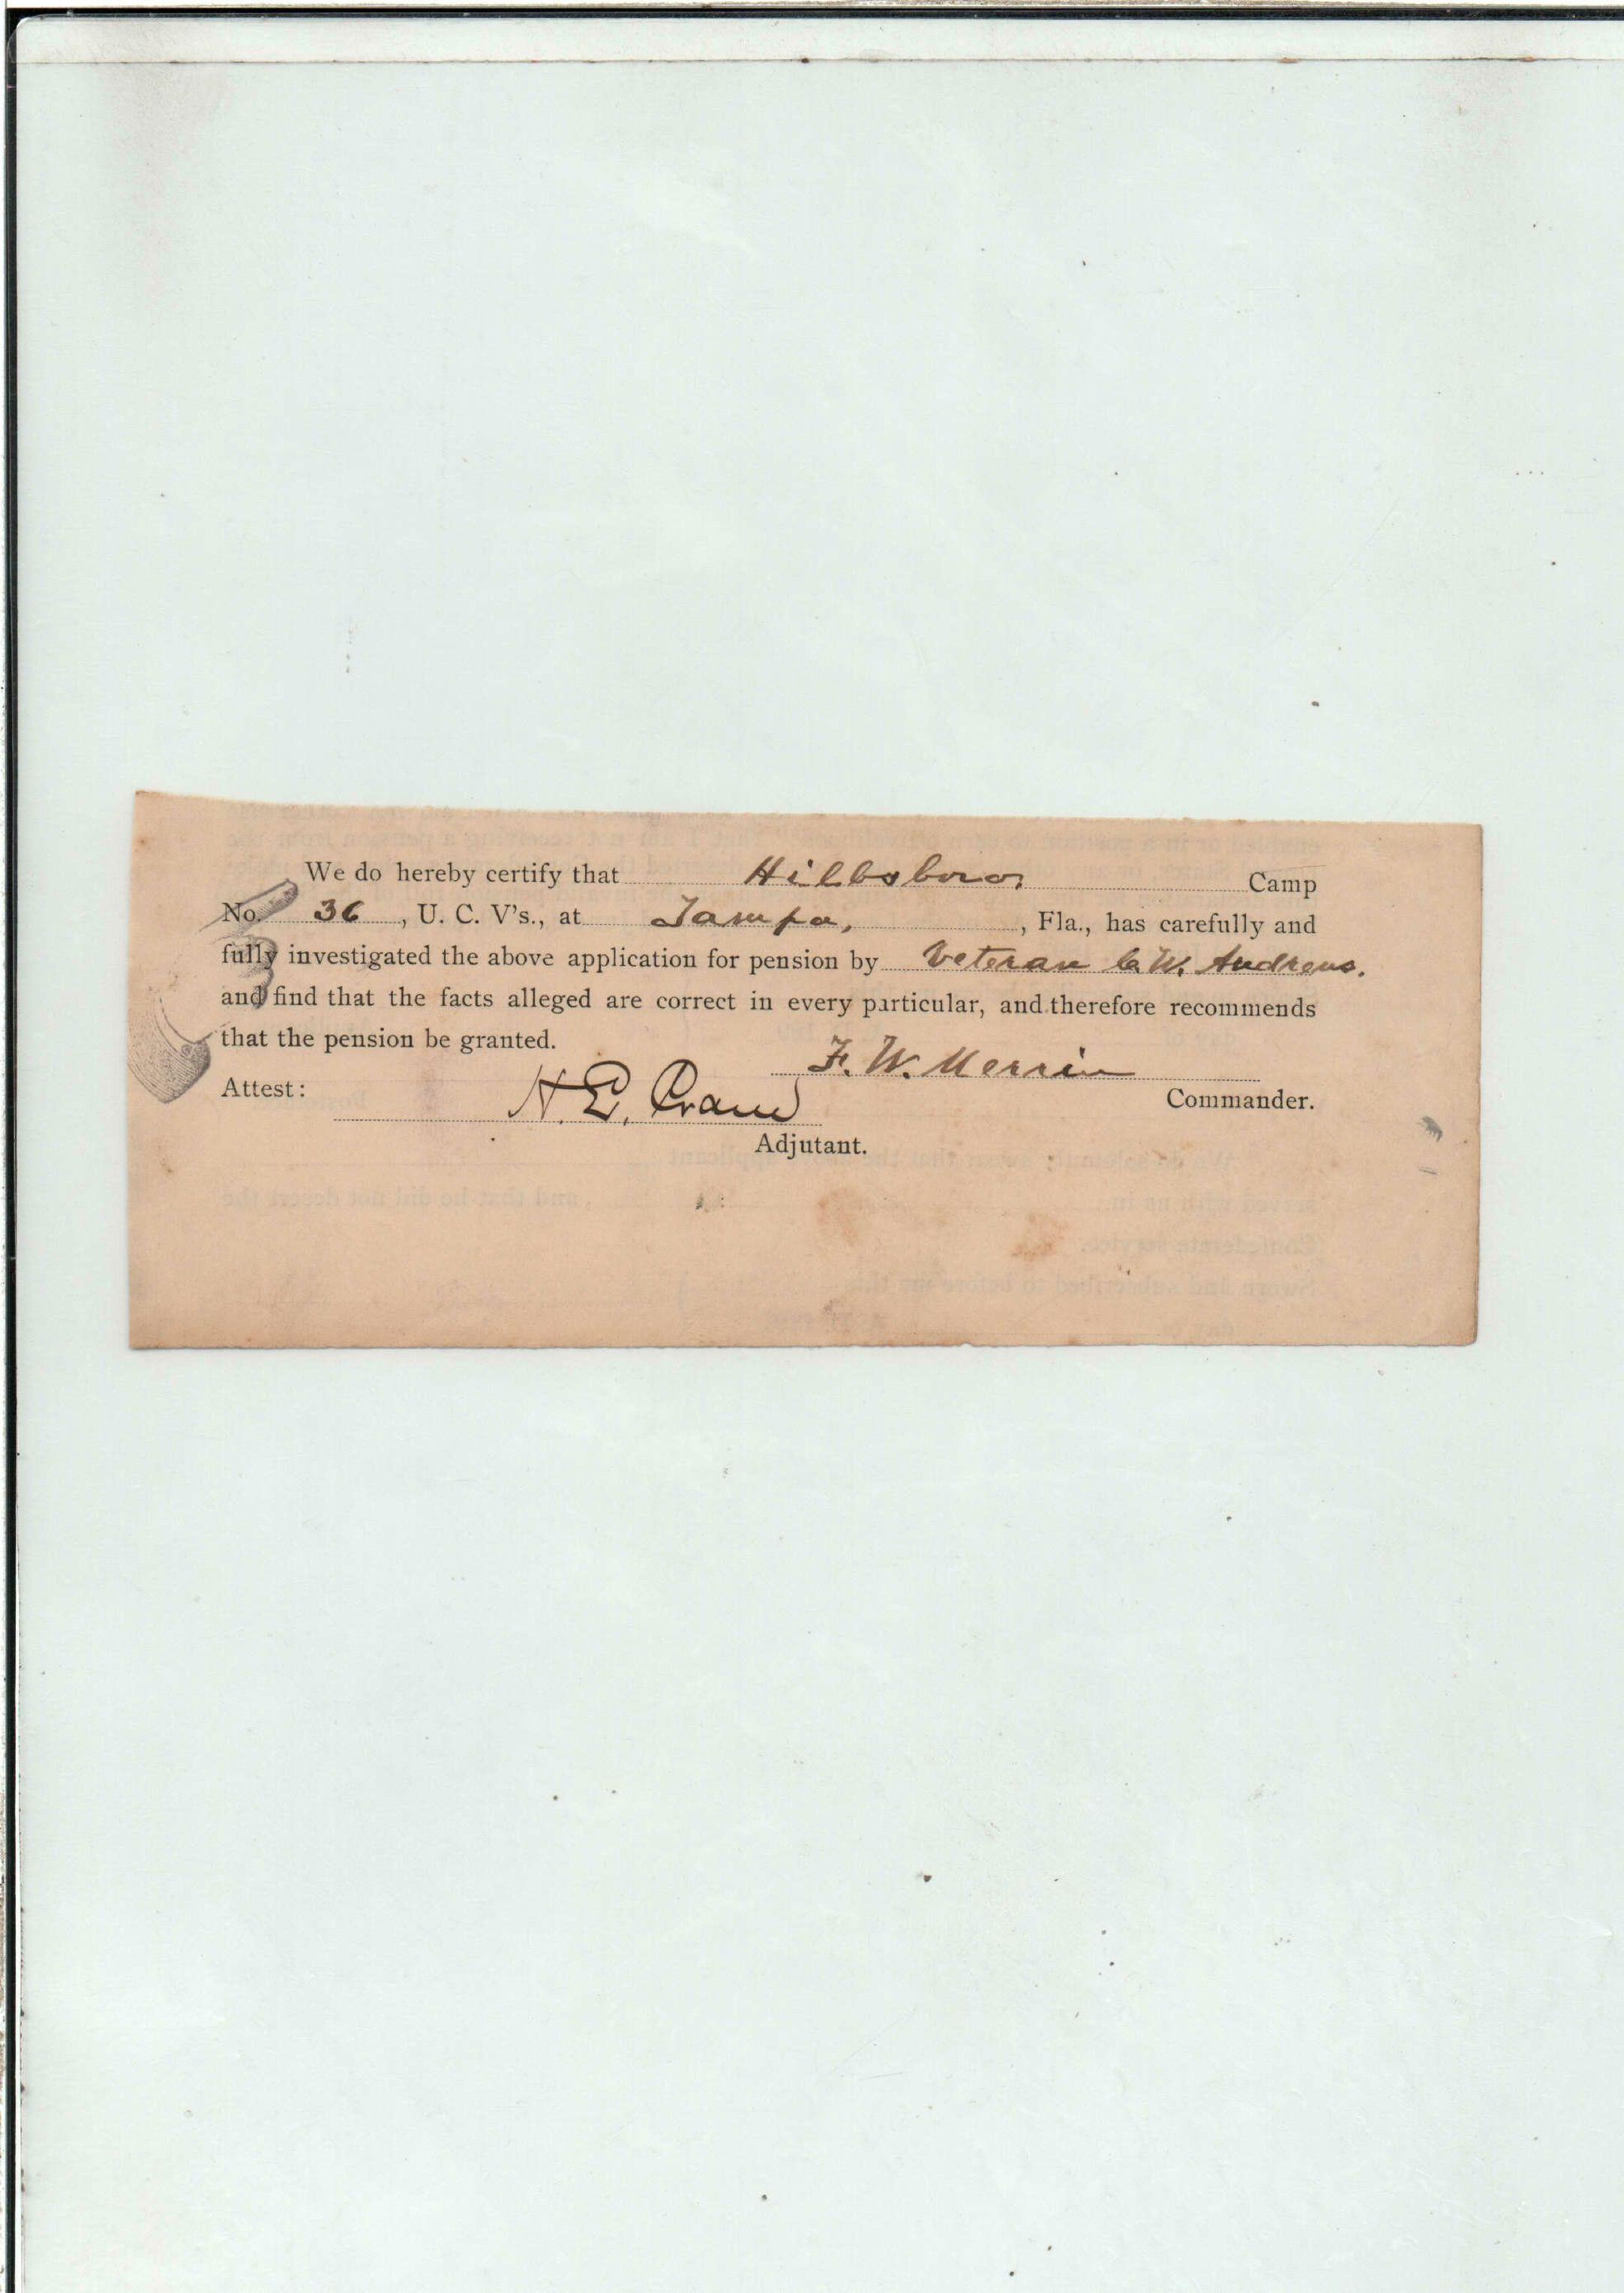 We do hereby certify that Hillsboro, Camp
No. 36, U. C. V's., at Tampa, , Fla., has carefully and
fully investigated the above application for pension by Veteran C. W. Andrews.
and find that the facts alleged are correct in every particular, and therefore recommends
that the pension be granted.
F. W. Merrin
Commander.
Attest: H. E. Crane
Adjutant.